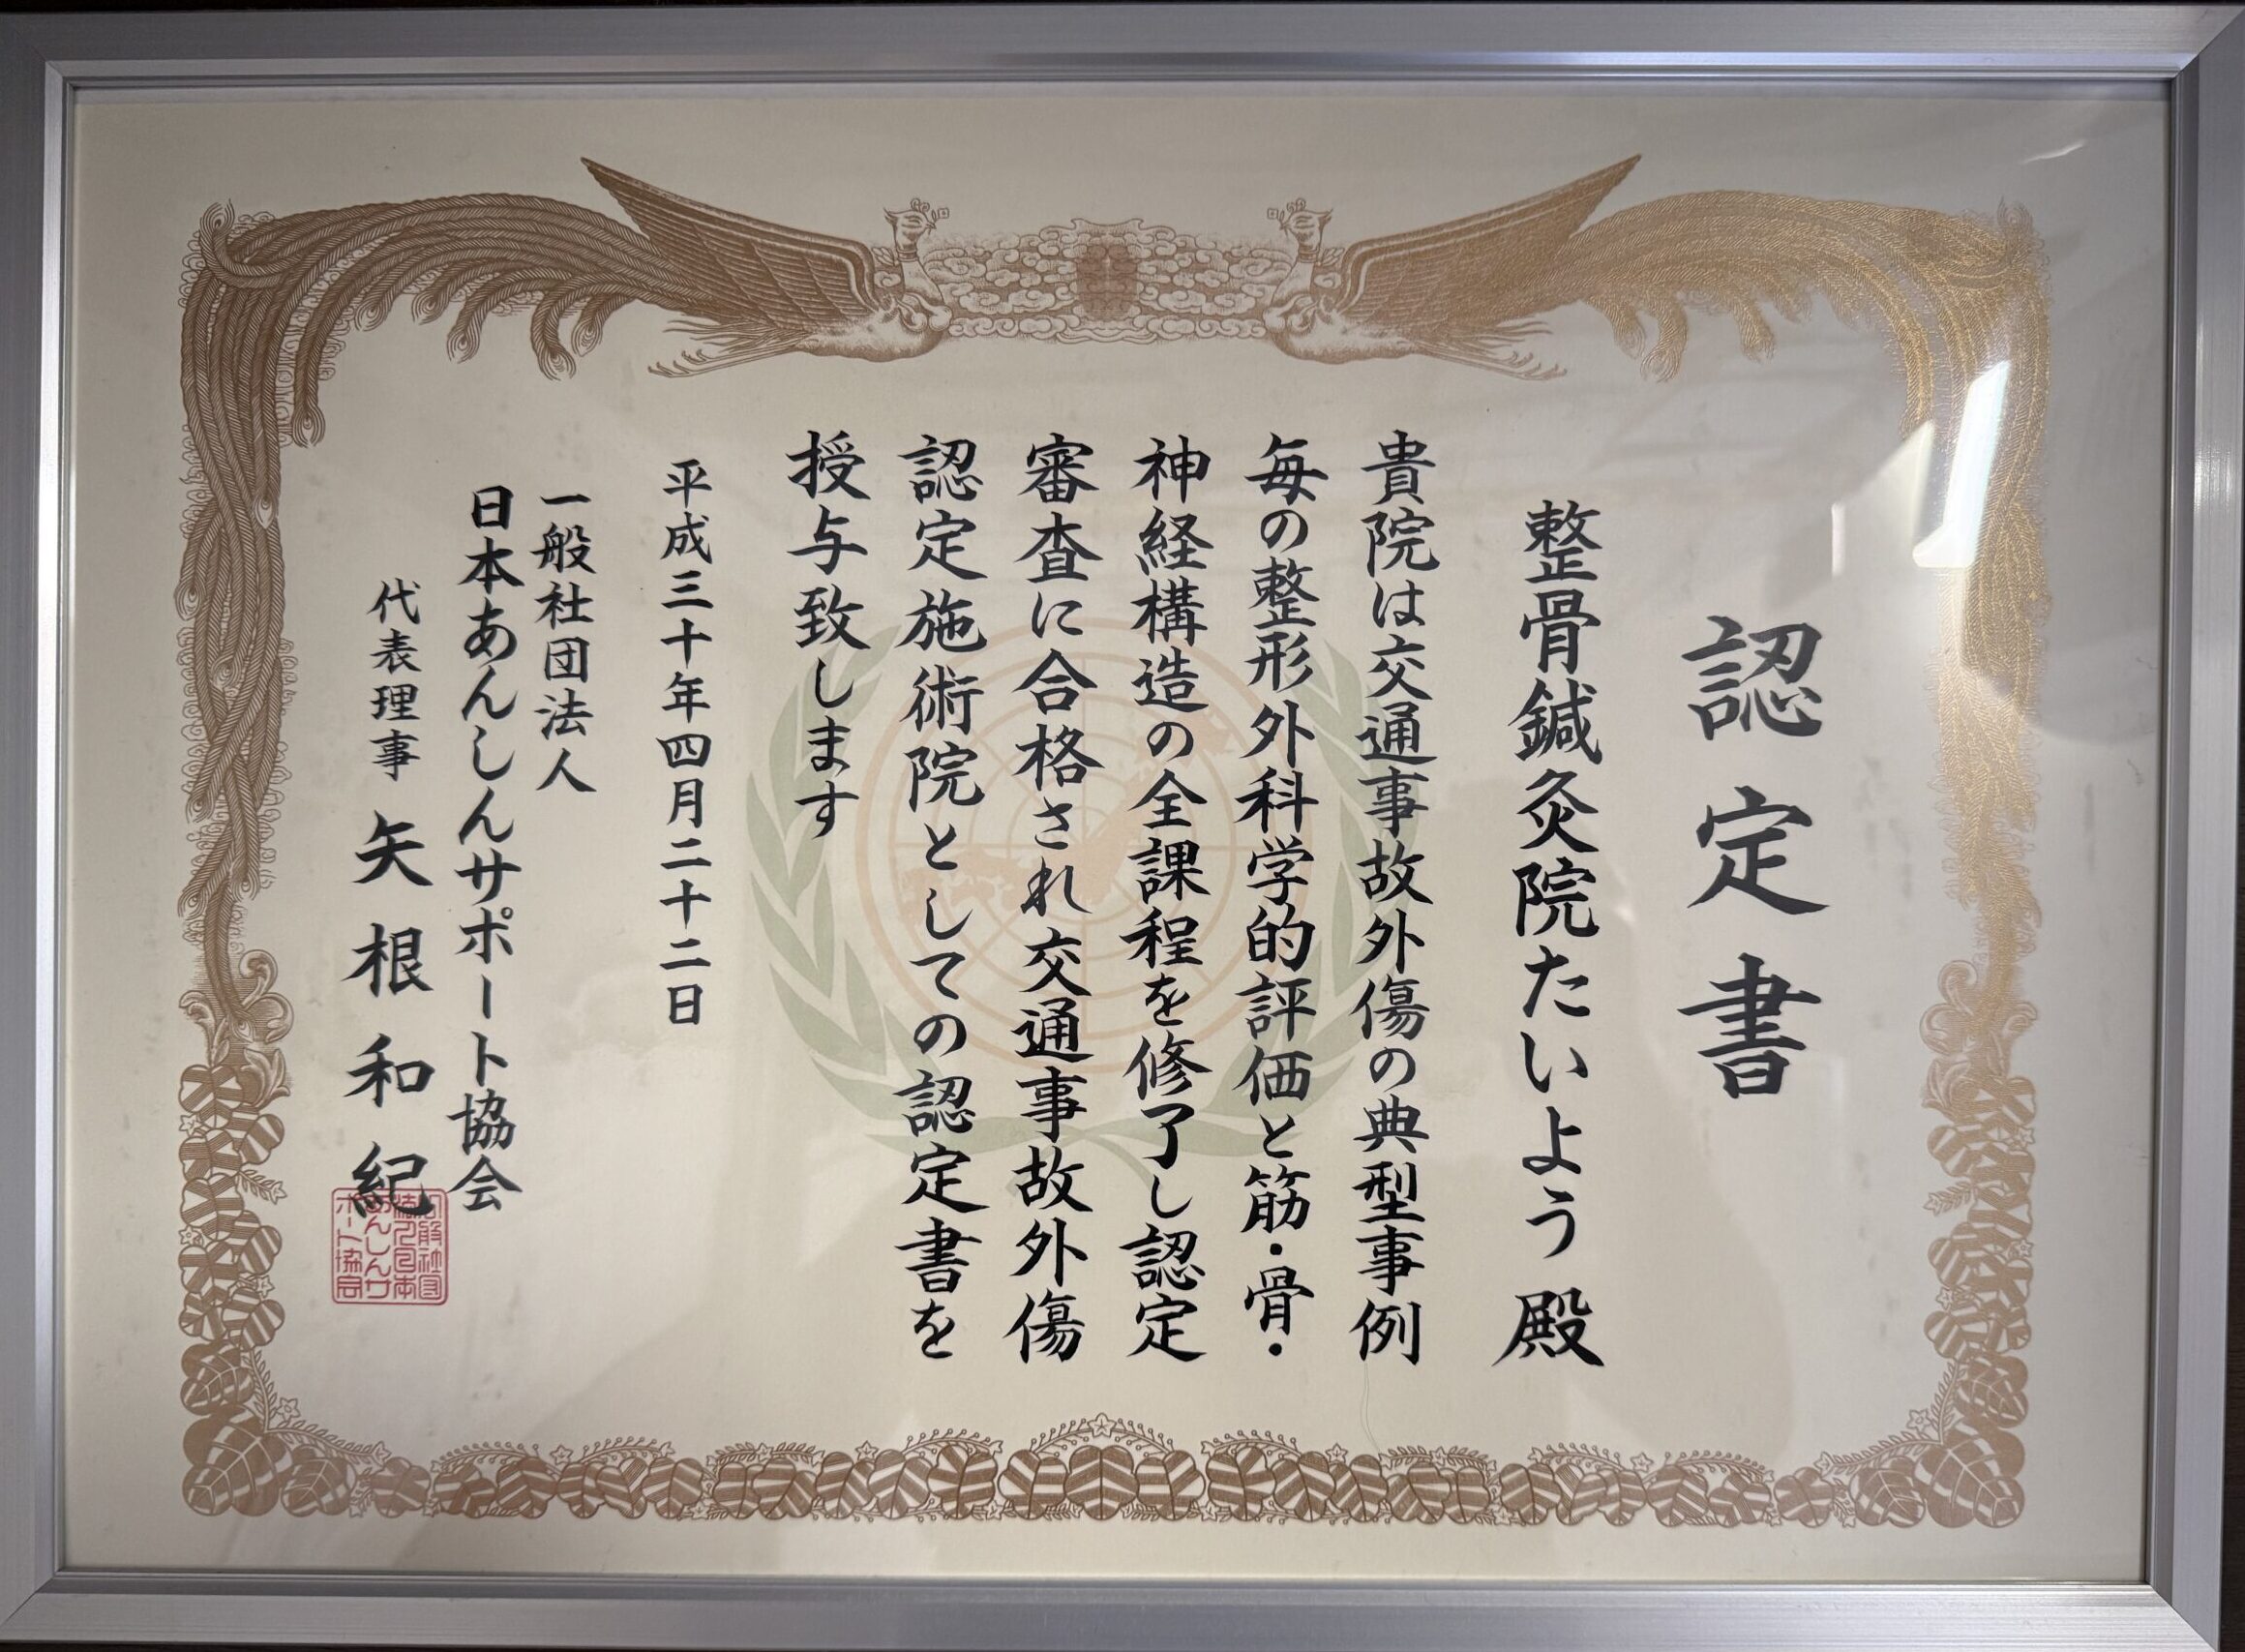 認定書
整骨鍼灸院たいよう 殿
貴院は交通事故外傷の典型事例
毎の整形外科学的評価と筋・骨・
神経構造の全課程を修了し認定
審査に合格され交通事故外傷
認定施術院としての認定書を
授与致します
平成三十年四月二十二日
一般社団法人
日本あんしんサポート協会
代表理事 矢根和紀
一般社団
法人日本
あんしんサ
ポート協会